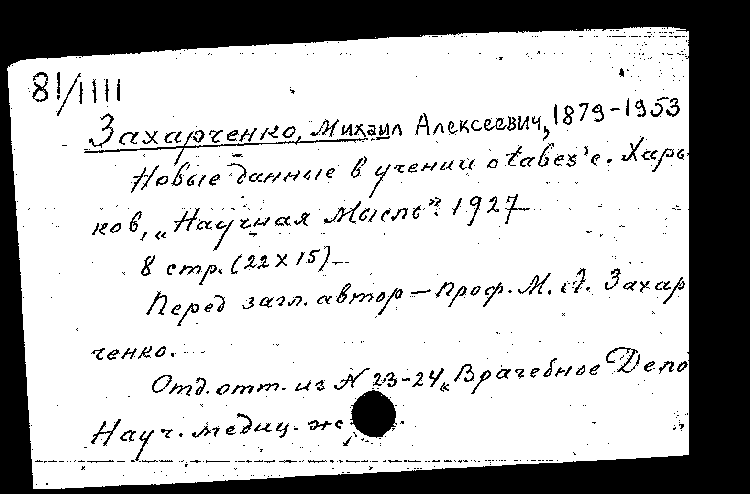 81/1111
Захарченко, Михаил Алексеевич, 1879-1953
Новые данные в учении о tabes'е. Харь-
ков, „Научная Мысль". 1927
8 стр. (22х15)
Перед загл. автор — проф. М. А. Захар
ченко.
Отд. отт. из N 23-24 „Врачебное Дело
Науч. медиц. ж